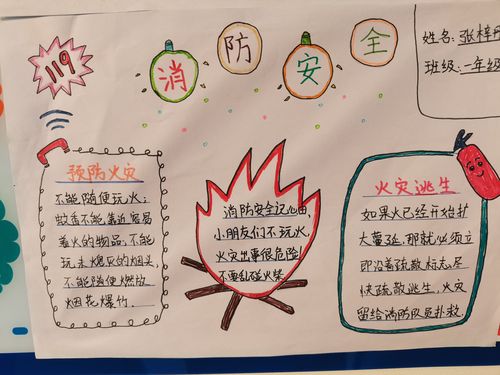 119
消防安全
姓名:张梓
班级:一年级
预防火灾
不能随便玩火;
蚊香不能靠近容易
着火的物品,不能
玩未熄灭的烟头
不能随便燃放
烟花爆竹。
消防安全记心田,
小朋友们不玩火,
火灾出事很危险!
不要乱碰火柴
火灾逃生
如果火已经开始扩
大蔓延,那就必须立
即沿着疏散标志尽
快疏散逃生,火灾
留给消防队员扑救。